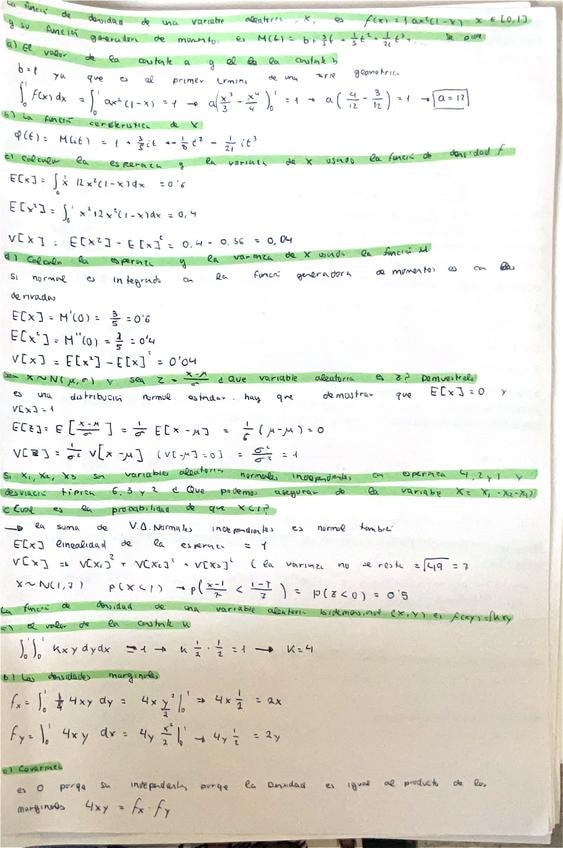 La función de densidad de una variable aleatoria, X, es f(x) = { ax²(1-x) x ∈ [0,1]
y su función generadora de momentos es M(t) = b + 3/5 t + 1/5 t² + 1/21 t³ ...
a) El valor de la constante a y el de la constante b
b=1 ya que es el primer termino de una serie geometrica
∫₀¹ f(x) dx = ∫₀¹ ax²(1-x) = 1 → a(x³/3 - x⁴/4)|₀¹ = 1 → a(4/12 - 3/12) = 1 → a=12
b) La función caracteristica de X
φ(t) = M(it) = 1 + 3/5 it - 1/5 t² - 1/21 it³
c) Calcular la esperanza y la varianza de X usando la función de densidad f
E[x] = ∫₀¹ x 12x²(1-x)dx = 0'6
E[x²] = ∫₀¹ x² 12x²(1-x)dx = 0,4
V[x] = E[x²] - E[x]² = 0,4 - 0,36 = 0,04
d) Calcula la esperanza y la varianza de X usando la función M
Si normal es integrado con la función generadora de momentos es con las
derivadas
E[x] = M'(0) = 3/5 = 0'6
E[x²] = M''(0) = 2/5 = 0'4
V[x] = E[x²] - E[x]² = 0'04
Sea X~N(μ,σ) y sea Z = x-μ/σ ¿Que variable aleatoria es Z? Demuestrelo
es una distribución normal estandar. hay que demostrar que E[x]=0 y
V[x]=1
E[Z] = E[x-μ/σ] = 1/σ E[x-μ] = 1/σ (μ-μ) = 0
V[Z] = 1/σ² V[x-μ] (V[-μ]=0) = σ²/σ² = 1
Si X₁, X₂, X₃ son variables aleatorias normales independientes con esperanza 4, 2 y 1 y
desviación tipica 6, 3 y 2 ¿Que podemos asegurar de la variable X = X₁-X₂-X₃?
¿Cual es la probabilidad de que X<1?
→ la suma de V.A. Normales independientes es normal también
E[x] linealidad de la esperanza = 1
V[x] = V[x₁]² + V[x₂]² + V[x₃]² (la varianza no se resta = √49 = 7
X~N(1,7) P(X<1) → P(x-1/7 < 1-1/7) = P(Z<0) = 0'5
La función de densidad de una variable aleatoria bidimensional (X,Y) es f(x,y)=kxy
a) el valor de la constante k
∫₀¹∫₀¹ kxy dydx = 1 → k 1/2 · 1/2 = 1 → k=4
b) Las densidades marginales
fx = ∫₀¹ 4xy dy = 4x y²/2|₀¹ → 4x 1/2 = 2x
fy = ∫₀¹ 4xy dx = 4y x²/2|₀¹ → 4y 1/2 = 2y
c) Covarianza
es 0 porque son independientes porque la densidad es igual al producto de las
marginales 4xy = fx · fy